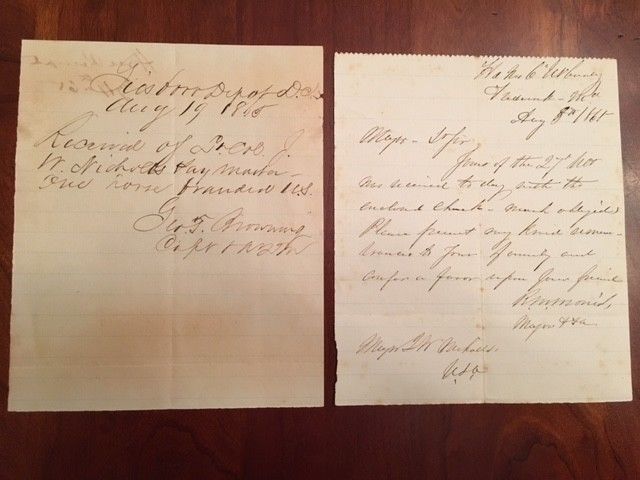 Giesboro Depot D.C.
Aug 19 1865
Received of Lt Col J.
W. Nicholls Paymaster
One horse branded U.S.
Geo. T. Browning
Capt & AQM
Hd Qrs
Frederick
Aug 8th /65
Major
Yours of the 27th
received to day with the
enclosed check - much obliged
Please present my kind remem-
brances to your family and
confer a favor upon your friend
Major
Major J W Nicholls
USA